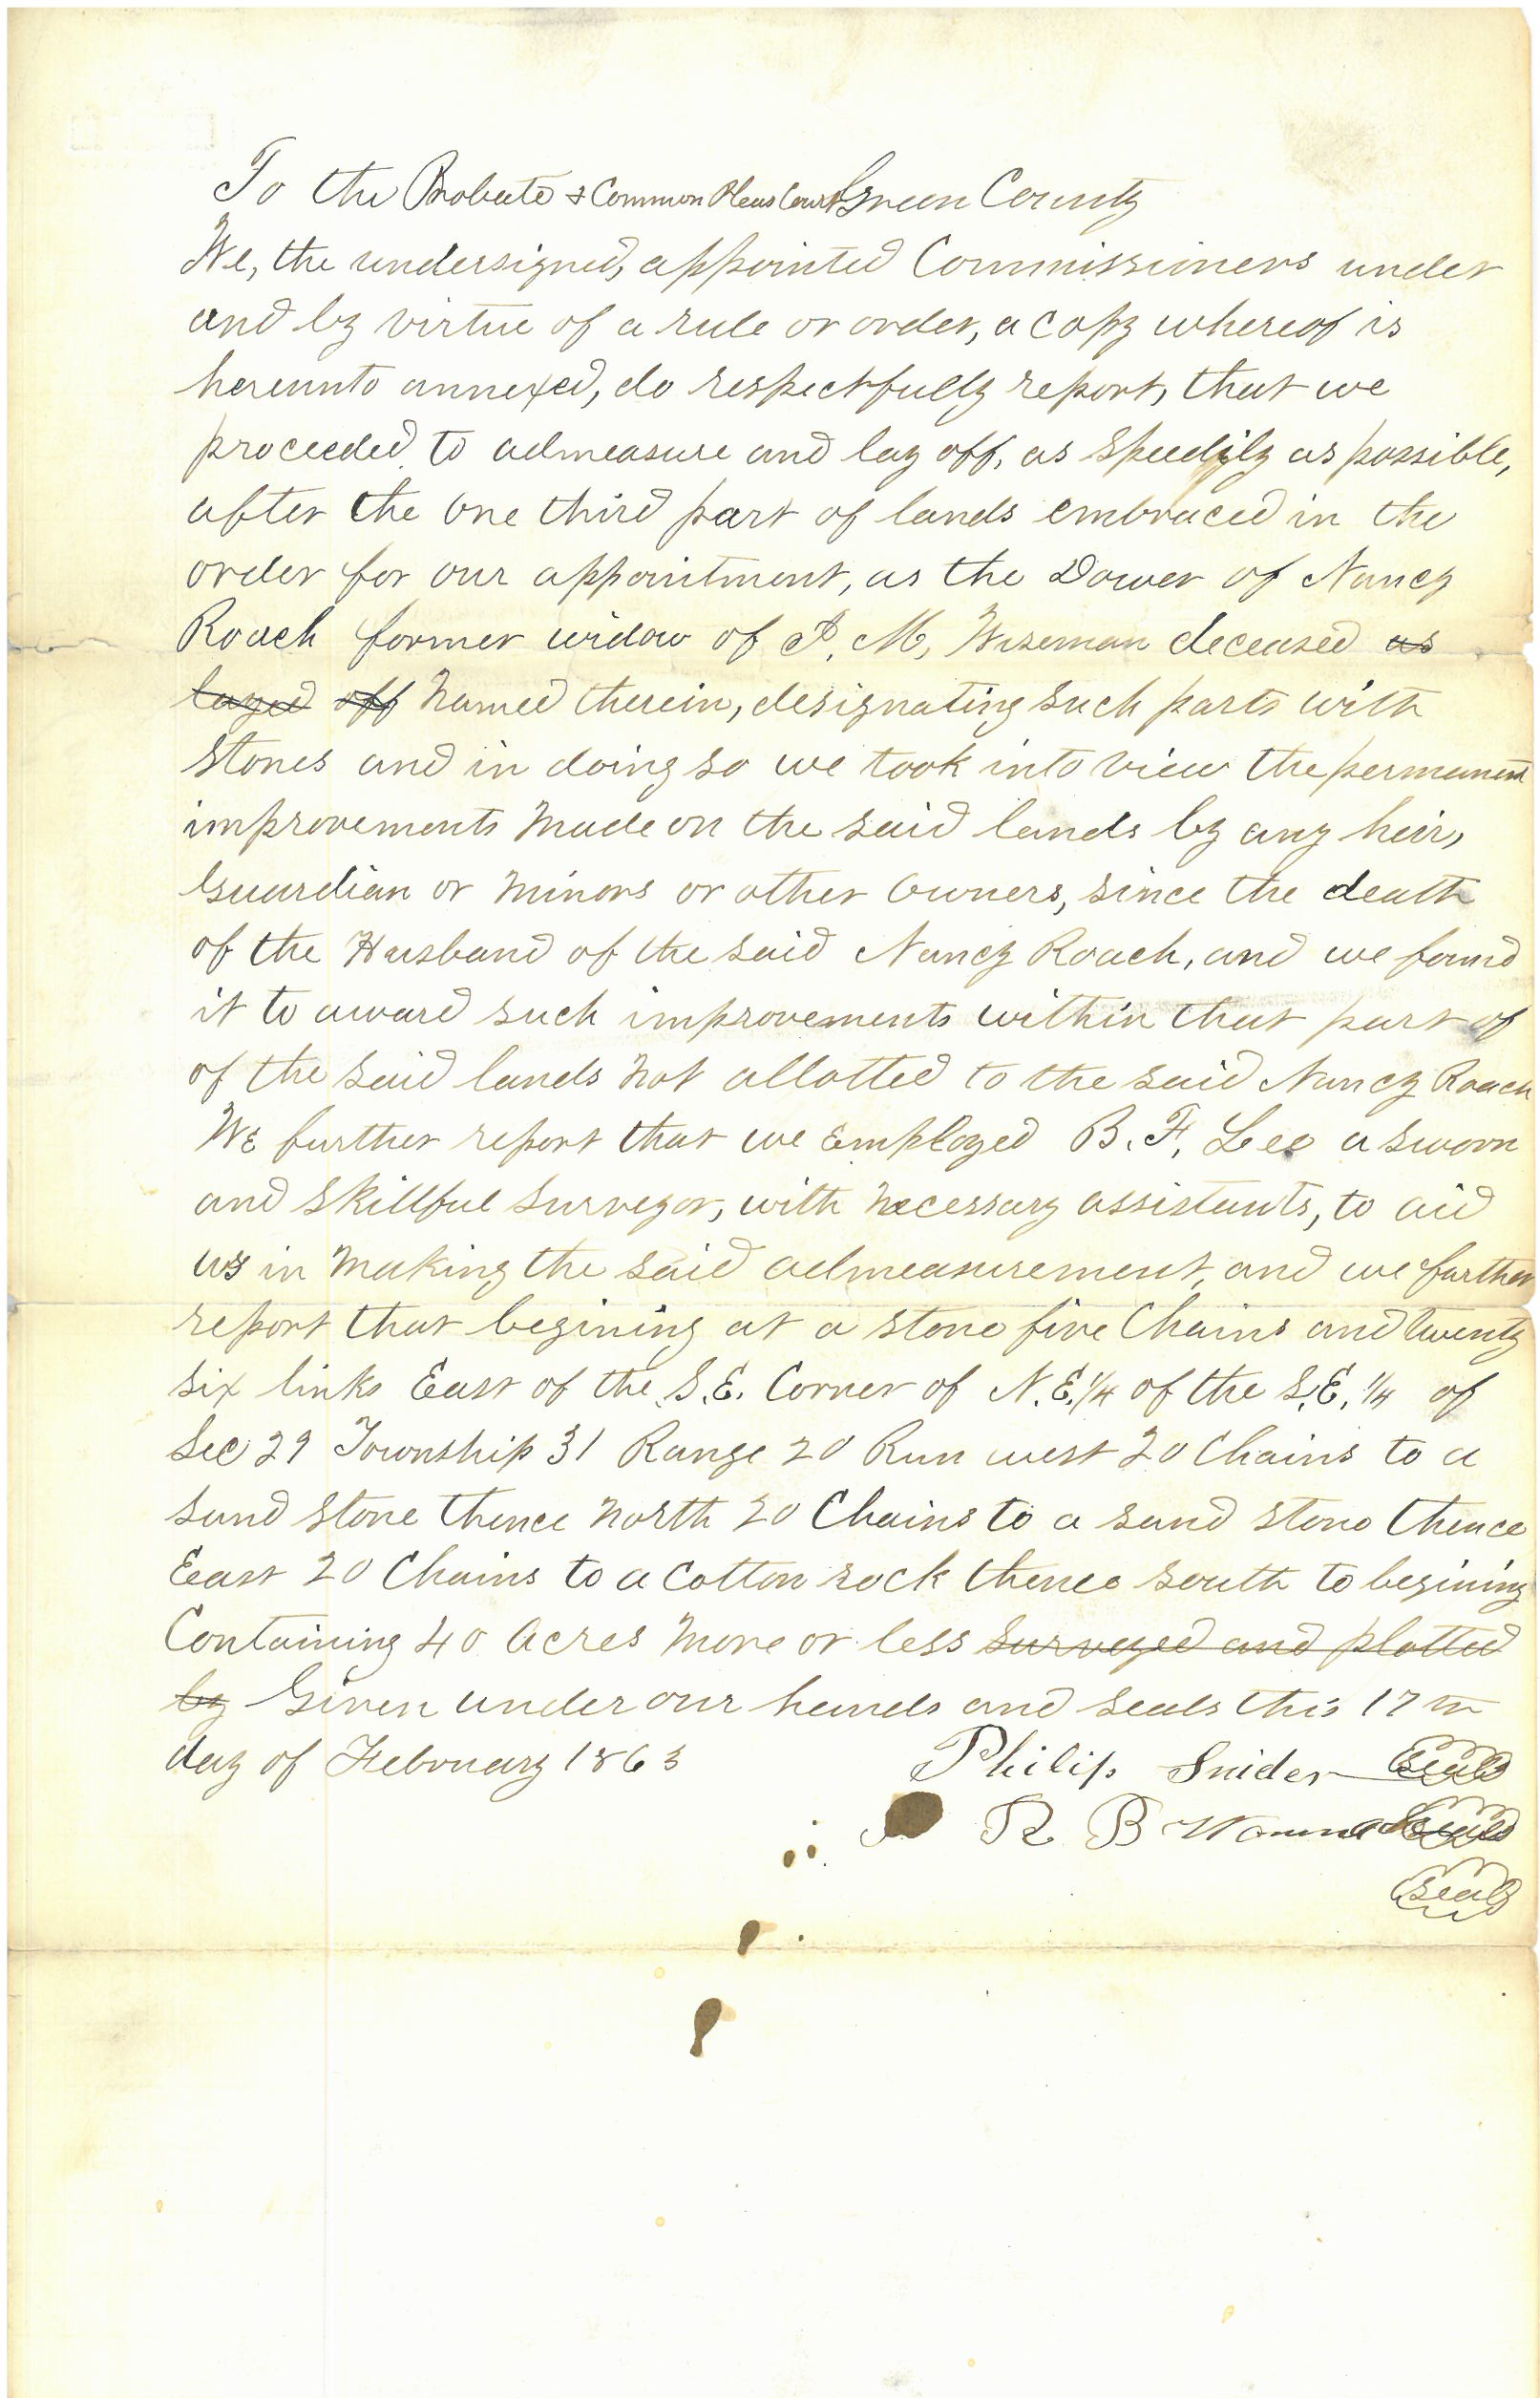 To the Probate & Common Pleas Court Green County
We, the undersigned, appointed Commissioners under
and by virtue of a rule or order, a copy whereof is
hereunto annexed, do respectfully report, that we
proceeded to admeasure and lay off, as speedily as possible,
after the one third part of lands embraced in the
order for our appointment, as the Dower of Nancy
Roach former widow of A. M, Wiseman deceased as
layed off Named therein, designating such parts with
stones and in doing so we took into view the permanent
improvements made on the said lands by any heir,
Guardian or Minors or other Owners, since the death
of the Husband of the said Nancy Roach, and we found
it to award such improvements within that part of
of the said lands not allotted to the said Nancy Roach
We further report that we Employed B. F. Lee a sworn
and skillful surveyor, with necessary assistants, to aid
us in making the said admeasurement, and we further
report that begining at a stone five Chains and twenty
six links East of the S.E. Corner of N.E. 1/4 of the S.E. 1/4 of
Sec 29 Township 31 Range 20 Run west 20 Chains to a
sand stone thence North 20 Chains to a sand stone thence
East 20 Chains to a Cotton rock thence south to begining
Containing 40 Acres More or less surveyed and platted
by Given under our hands and seals this 17th
day of February 1863 Philip Snider Seal
R B Seal
Seal